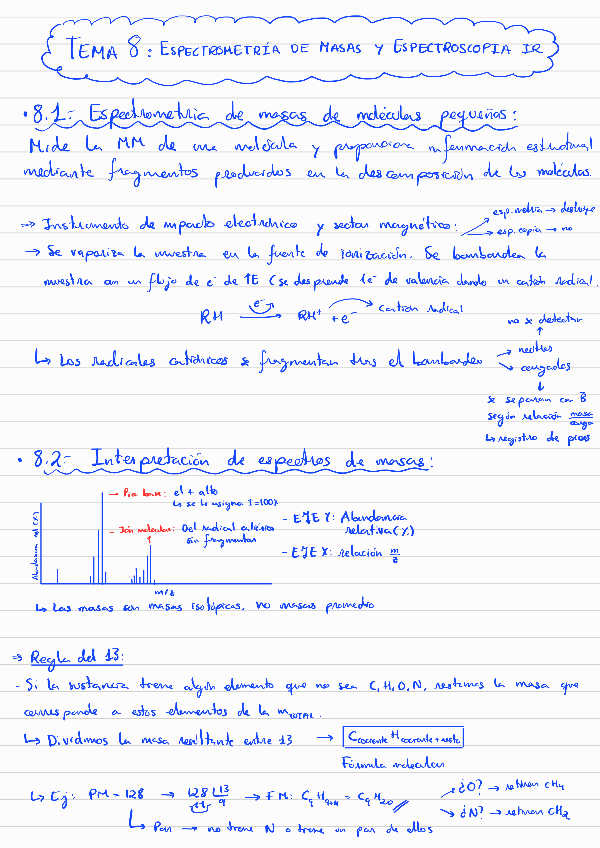 TEMA 8: ESPECTROMETRÍA DE MASAS Y ESPECTROSCOPIA IR
• 8.1: Espectrometria de masas de moléculas pequeñas:
Mide la MM de una molécula y proporciona información estructural
mediante fragmentos producidos en la descomposición de las moléculas.
⇒ Instrumento de impacto electrónico y sector magnético:
esp.metría → destruye
esp.copia → no
→ Se vaporiza la muestra en la fuente de ionización. Se bombardea la
muestra con un flujo de e⁻ de ↑E (se desprende 1e⁻ de valencia dando un catión radical.
RH → e⁻ RH⁺ + e⁻ → Catión radical
↳ Los radicales catiónicos se fragmentan tras el bombardeo
no se detectan
↑
→ neutros
→ cargados
↓
se separan con B
según relación masa/carga
↳ registro de picos
• 8.2: Interpretación de espectros de masas:
Abundancia rel (%)
→ Pico base: el + alto
↳ se le asigna I=100%
→ Ión molecular: Del radical catiónico
sin fragmentar
m/z
- EJE Y: Abundancia
relativa (%)
- EJE X: relación m/z
↳ Las masas son masas isotópicas, no masas promedio
⇒ Regla del 13:
- Si la sustancia tiene algún elemento que no sea C, H, O, N, restamos la masa que
corresponde a estos elementos de la m TOTAL.
↳ Dividimos la masa resultante entre 13 → C cociente H cociente + resto
Fórmula molecular
↳ Ej: PM = 128 → 128 | 13
11 9
→ FM: C₉ H₉₊₁₁ = C₉ H₂₀
¿O? → retiran CH₄
¿N? → retiran CH₂
↳ Par → no tiene N o tiene un par de ellos